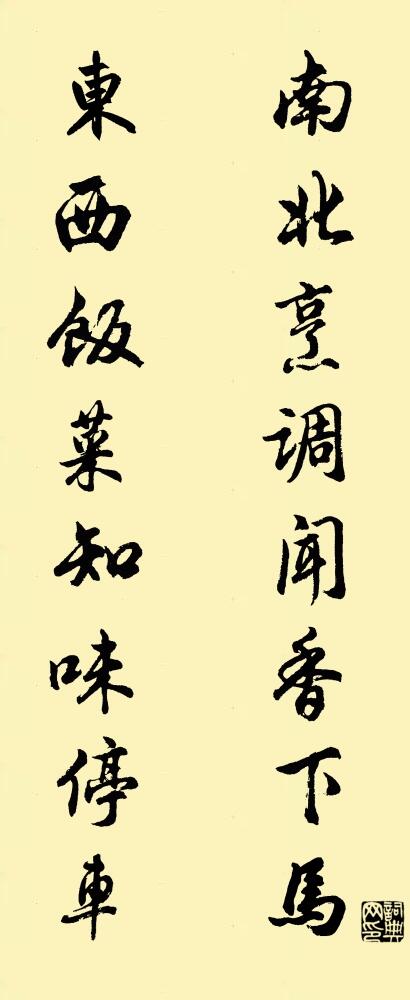 南北烹调闻香下馬
東西飯菜知味停車
詞典网印